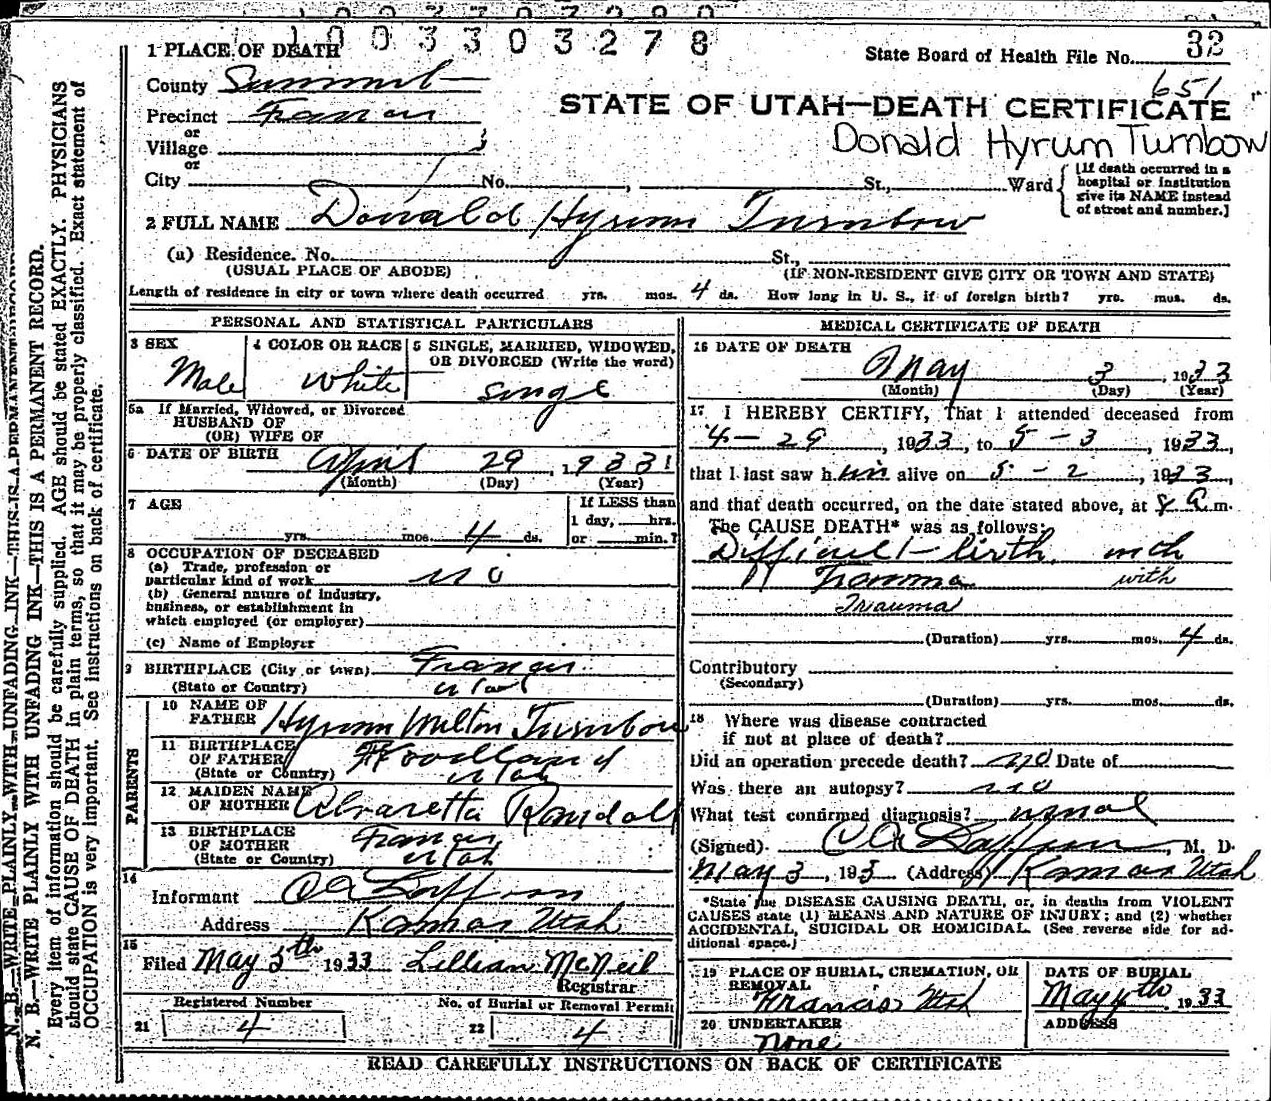 1003303278
1 PLACE OF DEATH
State Board of Health File No. 32
651
County Summit
STATE OF UTAH—DEATH CERTIFICATE
Precinct Francis
Donald Hyrum Turnbow
or
Village
or
City No. , St., Ward
[If death occurred in a
hospital or institution
give its NAME instead
of street and number.]
2 FULL NAME Donald Hyrum Turnbow
(a) Residence. No. St.,
(USUAL PLACE OF ABODE) (IF NON-RESIDENT GIVE CITY OR TOWN AND STATE)
Length of residence in city or town where death occurred yrs. mos. 4 ds. How long in U. S., if of foreign birth? yrs. mos. ds.
PERSONAL AND STATISTICAL PARTICULARS
3 SEX
Male
4 COLOR OR RACE
White
5 SINGLE, MARRIED, WIDOWED,
OR DIVORCED (Write the word)
single
5a If Married, Widowed, or Divorced
HUSBAND OF
(OR) WIFE OF
6 DATE OF BIRTH April 29, 1933
(Month) (Day) (Year)
7 AGE
yrs. mos. 4 ds.
If LESS than
1 day, hrs.
or min.?
8 OCCUPATION OF DECEASED
(a) Trade, profession or
particular kind of work no
(b) General nature of industry,
business, or establishment in
which employed (or employer)
(c) Name of Employer
9 BIRTHPLACE (City or town) Francis
(State or Country) Utah
PARENTS
10 NAME OF
FATHER Hyrum Milton Turnbow
11 BIRTHPLACE
OF FATHER Woodland
(State or Country) Utah
12 MAIDEN NAME
OF MOTHER Alvaretta Randall
13 BIRTHPLACE
OF MOTHER Francis
(State or Country) Utah
14
Informant
Address Kamas Utah
15
Filed May 5th 1933 Lillian McNeil
Registrar
Registered Number
21 4
No. of Burial or Removal Permit
22 4
MEDICAL CERTIFICATE OF DEATH
16 DATE OF DEATH
May 3, 1933
(Month) (Day) (Year)
17 I HEREBY CERTIFY, That I attended deceased from
4-29, 1933, to 5-3, 1933,
that I last saw him alive on 5-2, 1933,
and that death occurred, on the date stated above, at 8 a.m.
The CAUSE DEATH* was as follows:
Difficult birth with
Trauma with
Trauma
(Duration) yrs. mos. 4 ds.
Contributory
(Secondary)
(Duration) yrs. mos. ds.
18 Where was disease contracted
if not at place of death?
Did an operation precede death? no Date of
Was there an autopsy? no
What test confirmed diagnosis? usual
(Signed) , M. D.
May 3, 1933 (Address) Kamas Utah
*State the DISEASE CAUSING DEATH, or, in deaths from VIOLENT
CAUSES state (1) MEANS AND NATURE OF INJURY; and (2) whether
ACCIDENTAL, SUICIDAL OR HOMICIDAL. (See reverse side for ad-
ditional space.)
19 PLACE OF BURIAL, CREMATION, OR
REMOVAL
Francis Utah
DATE OF BURIAL
May 4th 1933
20 UNDERTAKER
None
ADDRESS
READ CAREFULLY INSTRUCTIONS ON BACK OF CERTIFICATE
N. B.—WRITE PLAINLY WITH UNFADING INK—THIS IS A PERMANENT RECORD.
N. B.—WRITE PLAINLY WITH UNFADING INK—THIS IS A PERMANENT RECORD.
Every item of information should be carefully supplied. AGE should be stated EXACTLY. PHYSICIANS
should state CAUSE OF DEATH in plain terms, so that it may be properly classified. Exact statement of
OCCUPATION is very important. See instructions on back of certificate.